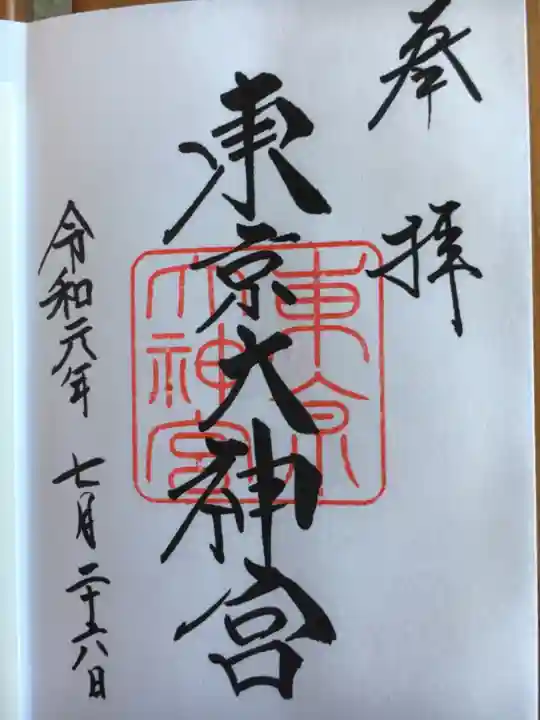 奉拝
東京大神宮
東京
大神宮
令和元年 七月二十六日